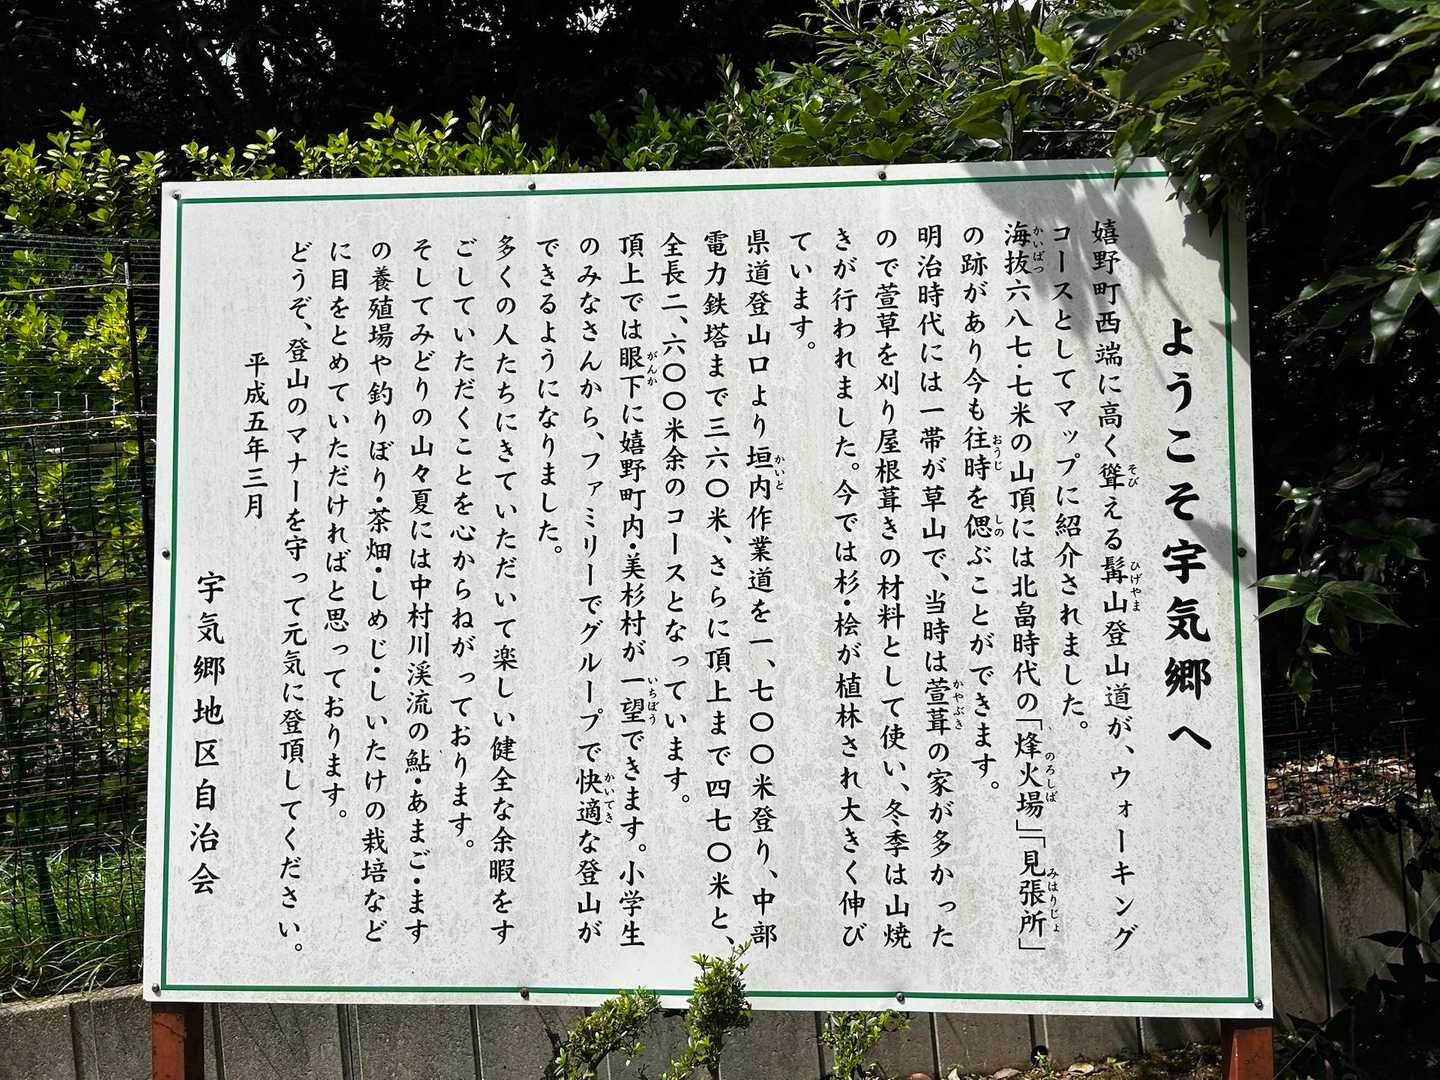 ようこそ宇気郷へ
嬉野町西端に高く聳える髯山登山道が、ウォーキング
コースとしてマップに紹介されました。
海抜六八七・七米の山頂には北畠時代の「烽火場」「見張所」
の跡があり今も往時を偲ぶことができます。
明治時代には一帯が草山で、当時は萱葺の家が多かった
ので萱草を刈り屋根葺きの材料として使い、冬季は山焼
きが行われました。今では杉・桧が植林され大きく伸び
ています。
県道登山口より垣内作業道を一、七〇〇米登り、中部
電力鉄塔まで三六〇米、さらに頂上まで四七〇米と、
全長二、六〇〇米余のコースとなっています。
頂上では眼下に嬉野町内・美杉村が一望できます。小学生
のみなさんから、ファミリーでグループで快適な登山が
できるようになりました。
多くの人たちにきていただいて楽しい健全な余暇をす
ごしていただくことを心からねがっております。
そしてみどりの山々夏には中村川渓流の鮎・あまご・ます
の養殖場や釣りぼり・茶畑・しめじ・しいたけの栽培など
に目をとめていただければと思っております。
どうぞ、登山のマナーを守って元気に登頂してください。
平成五年三月
宇気郷地区自治会